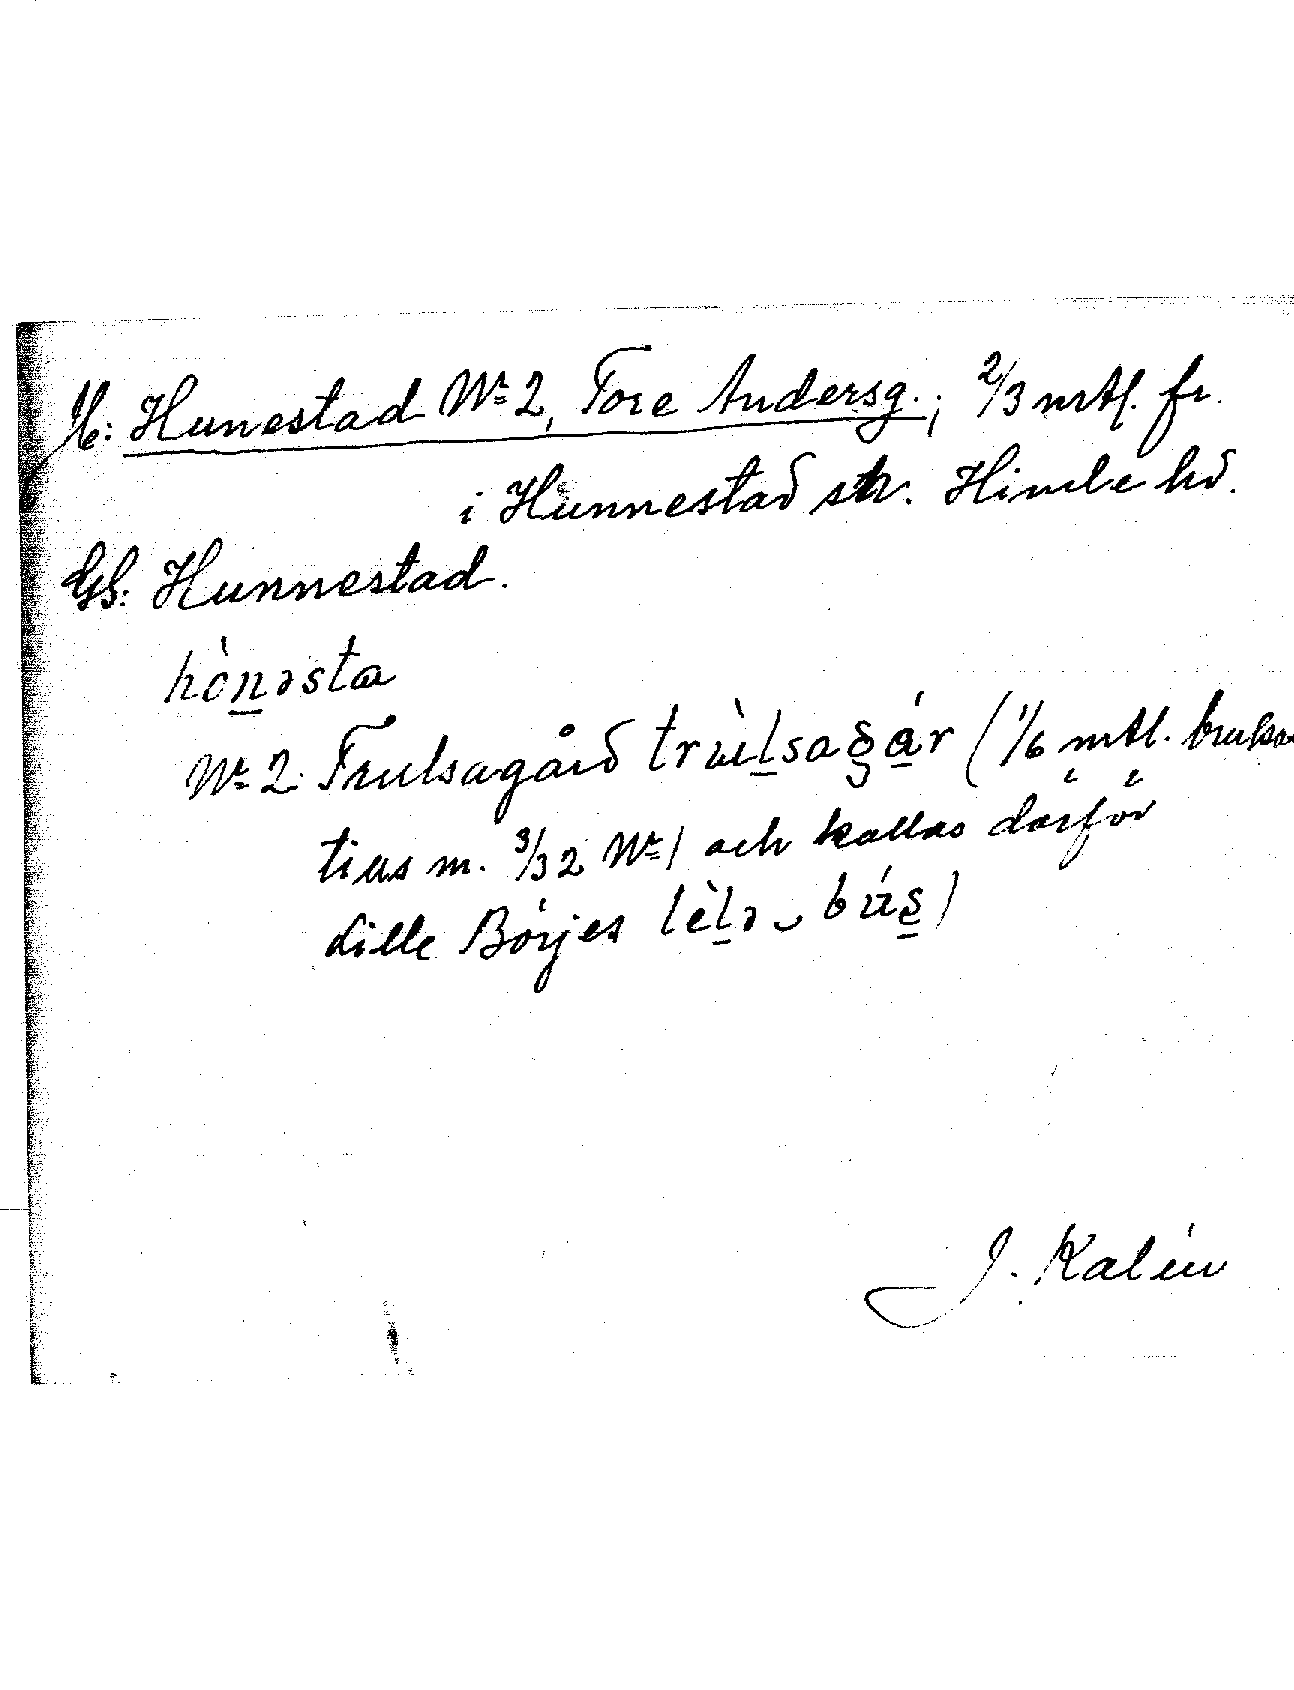 M: Hunestad Nr 2, Tore Andersg.; 2/3 mtl. fr.
i Hunnestad sk. Himle hd.
GS: Hunnestad.
hònəsta
Nr 2. Trulsagård trùlsagár (1/6 mtl. brukas
tills m. 3/32 Nr 1 och kallas därför
Lille Börjes lèlə bús)
J. Kalén